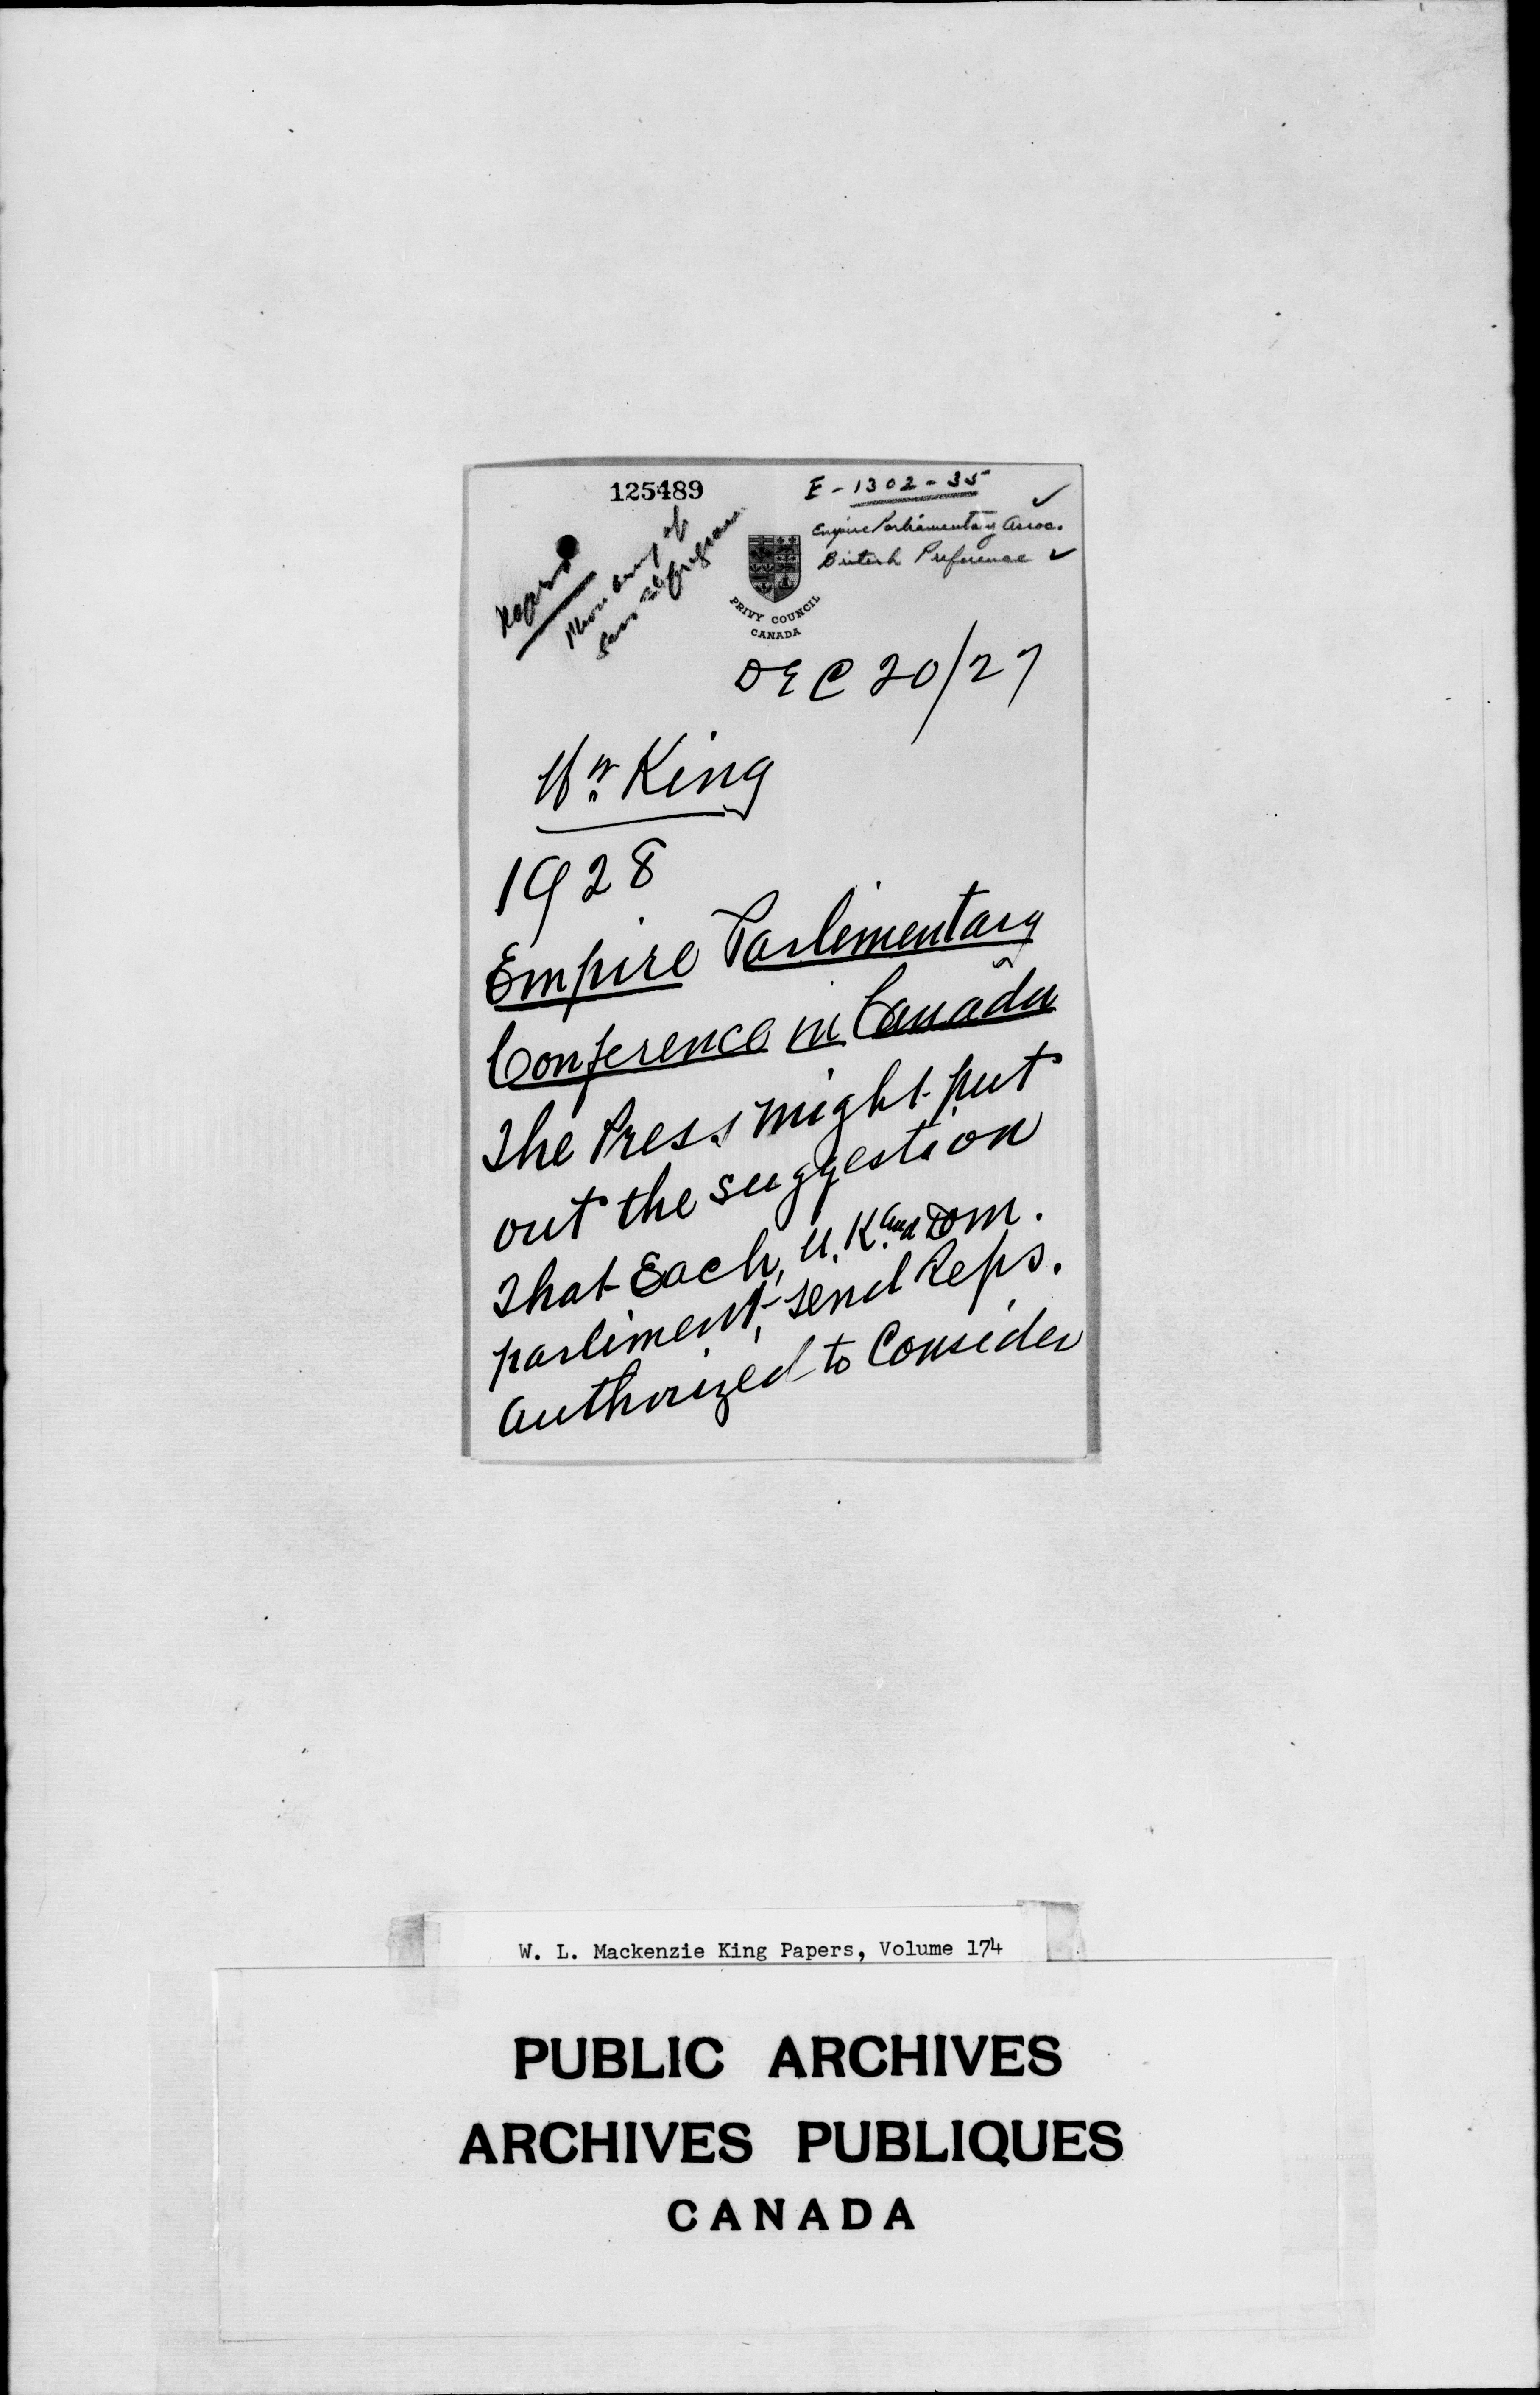 125489
E-1302-35
Empire Parliamentary Assoc.
British Preference
PRIVY COUNCIL
CANADA
DEC 20/27
Mr. King
1928
Empire Parlimentary
Conference in Canada
The Press might put
out the suggestion
That Each, U.K. and Dom.
parliment, send Reps.
Authorized to Consider
W. L. Mackenzie King Papers, Volume 174
PUBLIC ARCHIVES
ARCHIVES PUBLIQUES
CANADA